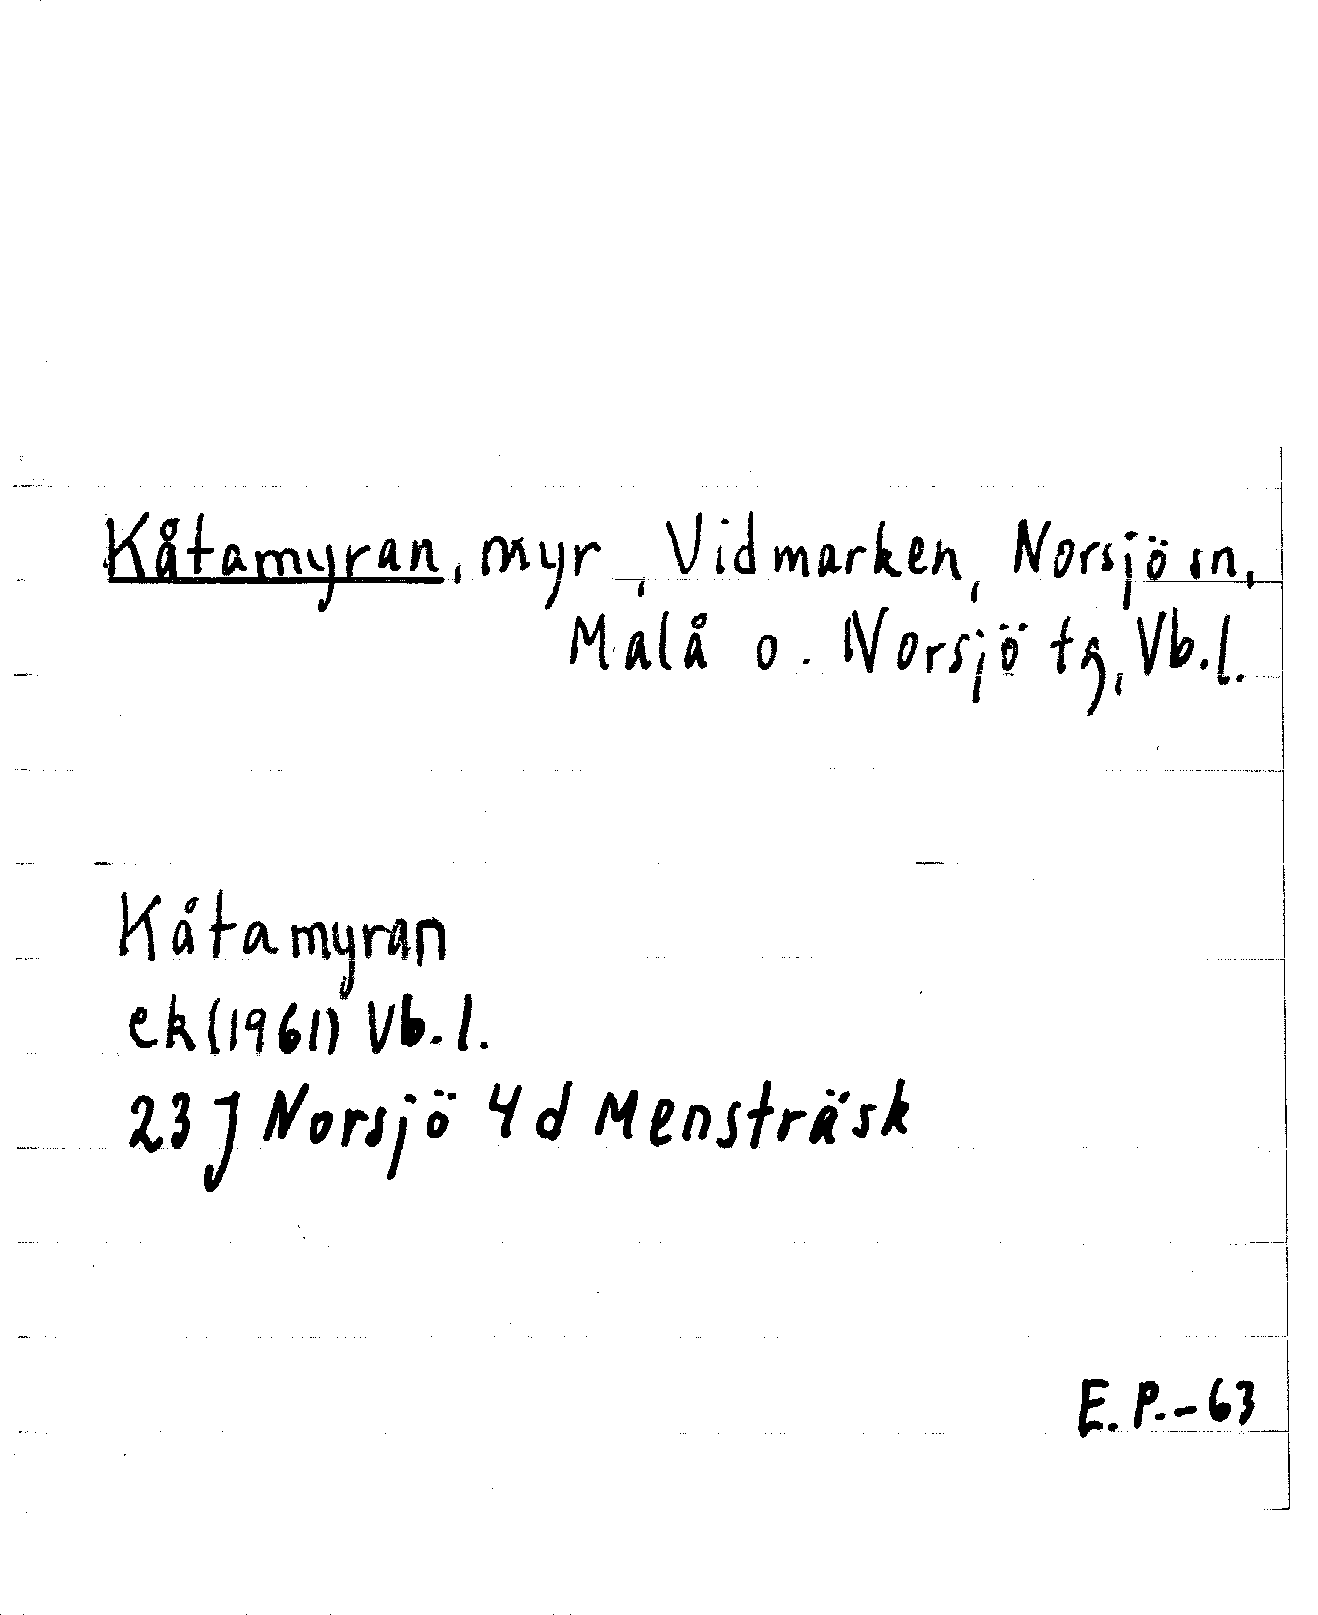 Kåtamyran, myr, Vidmarken, Norsjö sn,
Malå o. Norsjö tg, Vb.l.
Kåtamyran
ek (1961) Vb.l.
23 J Norsjö 4 d Mensträsk
E.P.-63